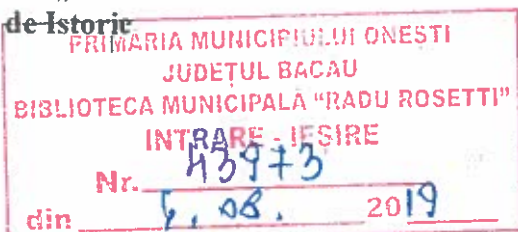 de Istoric
PRIMĂRIA MUNICIPIULUI ONEȘTI
JUDEȚUL BACĂU
BIBLIOTECA MUNICIPALĂ “RADU ROSETTI”
INTRARE - IEȘIRE
Nr. 43973
din 08. 2019